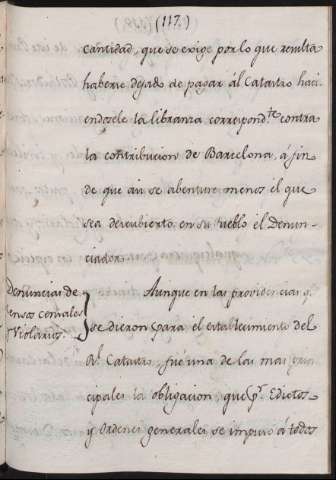 (117.)
cantidad, que se exige por lo que resulta
haberse dejado de pagar al Catastro haci-
endosele la libranza correspond.te contra
la contribucion de Barcelona, á fin
de que asi se abenture menos el que
sea descubierto en su Pueblo el Denun-
ciador.
Denuncias de
censos censales
Violarios.
Aunque en las providencias q.e
se dieron para el establecimiento del
R.l Catastro, fué una de las mas prin-
cipales la obligacion, que p.r Edictos
y Ordenes generales se impuso á todos